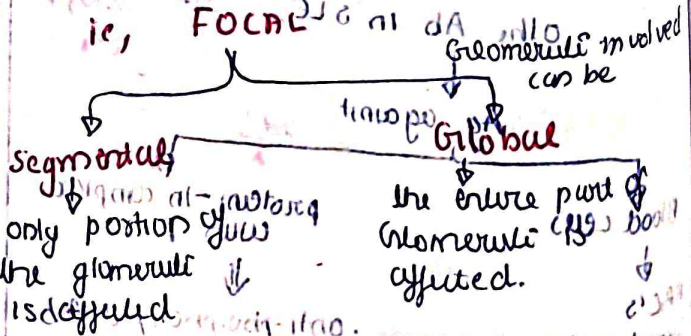 ie, FOCAL
Glomeruli involved
can be
segmental
Global
only portion of
the glomeruli
is affected
the entire part of
Glomeruli
affected.